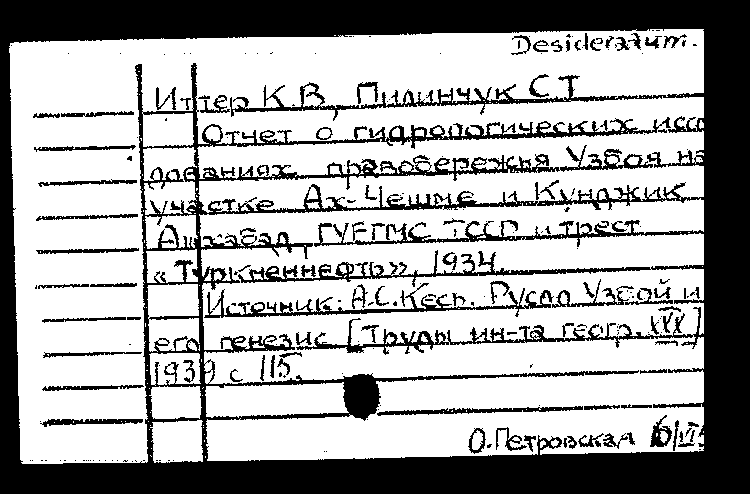 Desideratum.
Иттер К.В, Пилинчук С Т
Отчет о гидрологических иссл
дованиях правобережья Узбоя на
участке Ах-Чешме и Кунджик
Ашхабад, ГУЕГМС ТССР и трест
«Туркменнефть», 1934.
Источник: А.С.Кесь. Русло Узбой и
его генезис [Труды ин-та геогр. XXX]
1939 с 115.
О.Петровская